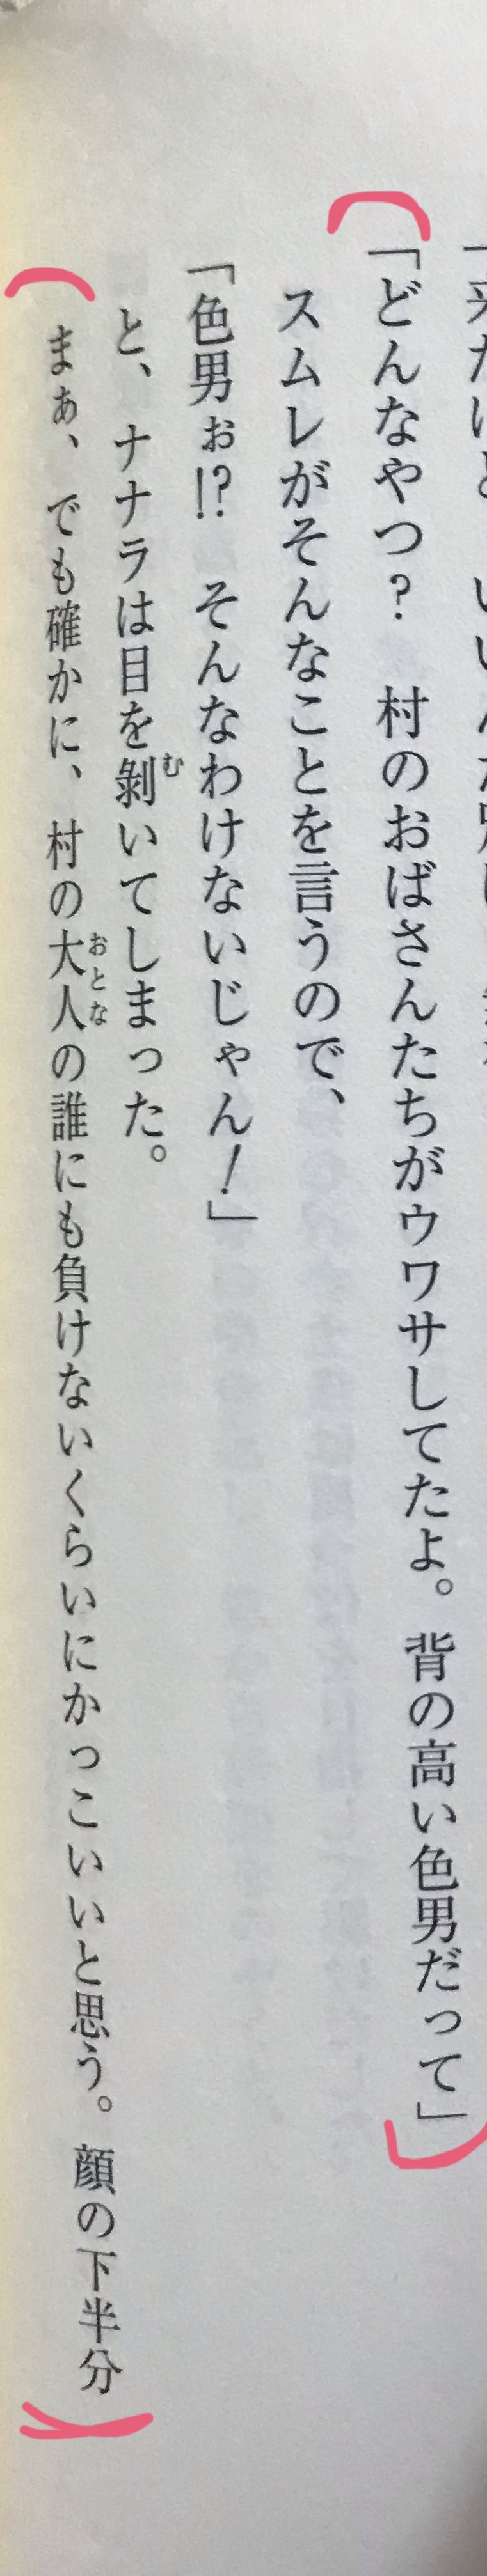 「どんなやつ？　村のおばさんたちがウワサしてたよ。背の高い色男だって」
スムレがそんなことを言うので、
「色男ぉ!?　そんなわけないじゃん！」
と、ナナラは目を剝いてしまった。
まぁ、でも確かに、村の大人の誰にも負けないくらいにかっこいいと思う。顔の下半分